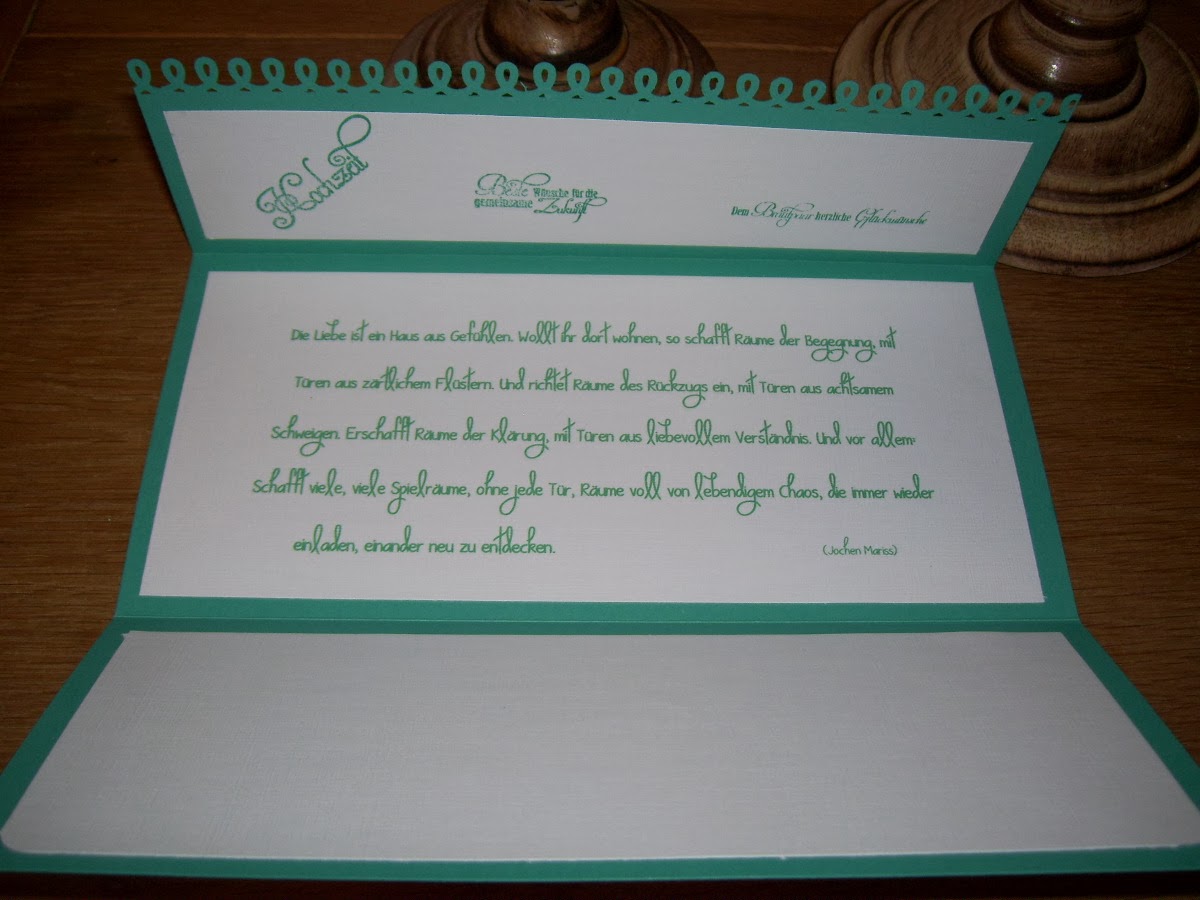 Hochzeit
Beste Wünsche für die
gemeinsame Zukunft
Dem Brautpaar herzliche Glückwünsche
Die Liebe ist ein Haus aus Gefühlen. Wollt ihr dort wohnen, so schafft Räume der Begegnung, mit
Türen aus zärtlichem Flüstern. Und richtet Räume des Rückzugs ein, mit Türen aus achtsamem
Schweigen. Erschafft Räume der Klärung, mit Türen aus liebevollem Verständnis. Und vor allem:
Schafft viele, viele Spielräume, ohne jede Tür, Räume voll von lebendigem Chaos, die immer wieder
einladen, einander neu zu entdecken. (Jochen Mariss)